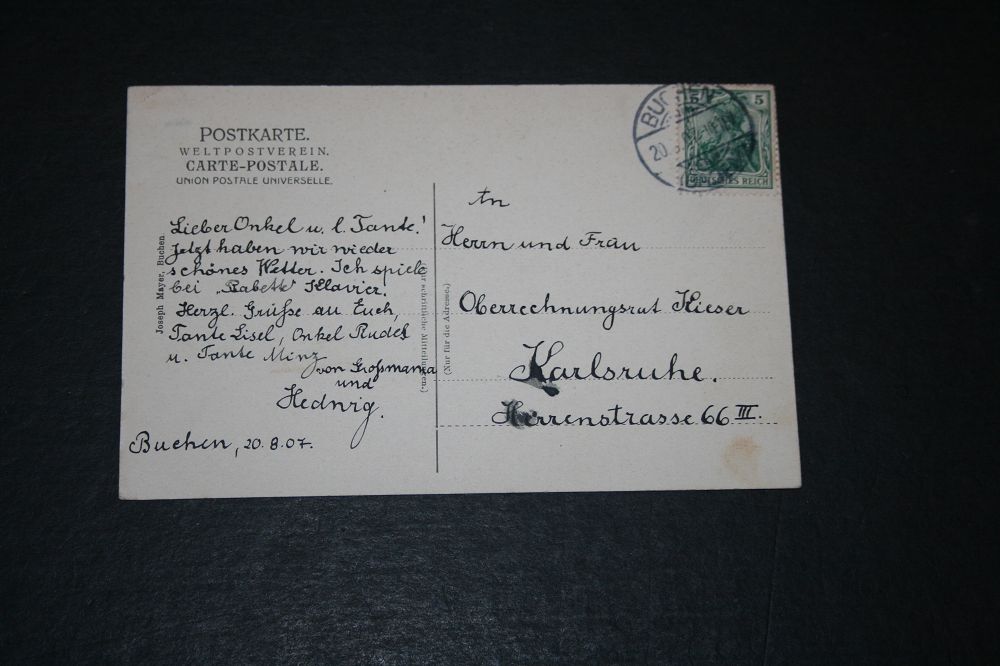 POSTKARTE.
WELTPOSTVEREIN.
CARTE-POSTALE.
UNION POSTALE UNIVERSELLE.
Lieber Onkel u. l. Tante!
Jetzt haben wir wieder
schönes Wetter. Ich spiele
bei „Babett“ Klavier.
Herzl. Grüße an Euch,
Tante Lisel, Onkel Rudolf
u. Tante Minz
von Großmama
und
Hedwig.
Buchen, 20.8.07.
Joseph Mayer, Buchen.
(Für schriftliche Mitteilungen.)
(Nur für die Adresse.)
BUCHEN
20
5 5
DEUTSCHES REICH
An
Herrn und Frau
Oberrechnungsrat Kieser
Karlsruhe.
Herrenstrasse 66 III.